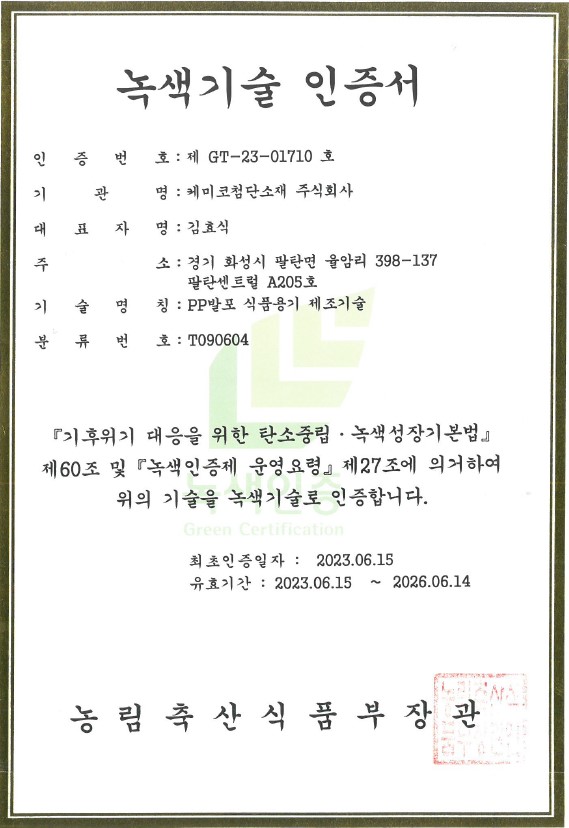 녹색기술 인증서
인 증 번 호 : 제 GT-23-01710 호
기 관 명 : 케미코첨단소재 주식회사
대 표 자 명 : 김효식
주 소 : 경기 화성시 팔탄면 율암리 398-137
팔탄센트럴 A205호
기 술 명 칭 : PP발포 식품용기 제조기술
분 류 번 호 : T090604
『기후위기 대응을 위한 탄소중립 · 녹색성장기본법』
제60조 및 『녹색인증제 운영요령』 제27조에 의거하여
위의 기술을 녹색기술로 인증합니다.
녹색인증
Green Certification
최초인증일자 : 2023.06.15
유효기간 : 2023.06.15 ~ 2026.06.14
농림축산식품부장관